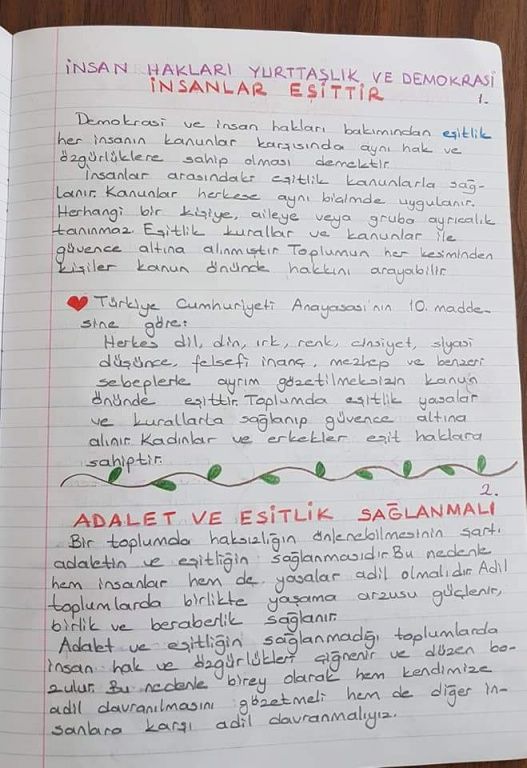 İNSAN HAKLARI YURTTAŞLIK VE DEMOKRASİ
İNSANLAR EŞİTTİR
1.
Demokrasi ve insan hakları bakımından eşitlik
her insanın kanunlar karşısında aynı hak ve
özgürlüklere sahip olması demektir.
İnsanlar arasındaki eşitlik kanunlarla sağ-
lanır. Kanunlar herkese aynı biçimde uygulanır.
Herhangi bir kişiye, aileye veya gruba ayrıcalık
tanınmaz. Eşitlik kurallar ve kanunlar ile
güvence altına alınmıştır. Toplumun her kesiminden
kişiler kanun önünde hakkını arayabilir.
Türkiye Cumhuriyeti Anayasası'nın 10. madde-
sine göre:
Herkes dil, din, ırk, renk, cinsiyet, siyasi
düşünce, felsefi inanç, mezhep ve benzeri
sebeplerle ayrım gözetilmeksizin kanun
önünde eşittir. Toplumda eşitlik yasalar
ve kurallarla sağlanıp güvence altına
alınır. Kadınlar ve erkekler eşit haklara
sahiptir.
2.
ADALET VE EŞİTLİK SAĞLANMALI
Bir toplumda haksızlığın önlenebilmesinin şartı
adaletin ve eşitliğin sağlanmasıdır. Bu nedenle
hem insanlar hem de yasalar adil olmalıdır. Adil
toplumlarda birlikte yaşama arzusu güçlenir,
birlik ve beraberlik sağlanır.
Adalet ve eşitliğin sağlanmadığı toplumlarda
insan hak ve özgürlükleri çiğnenir ve düzen bo-
zulur. Bu nedenle birey olarak hem kendimize
adil davranılmasını gözetmeli hem de diğer in-
sanlara karşı adil davranmalıyız.